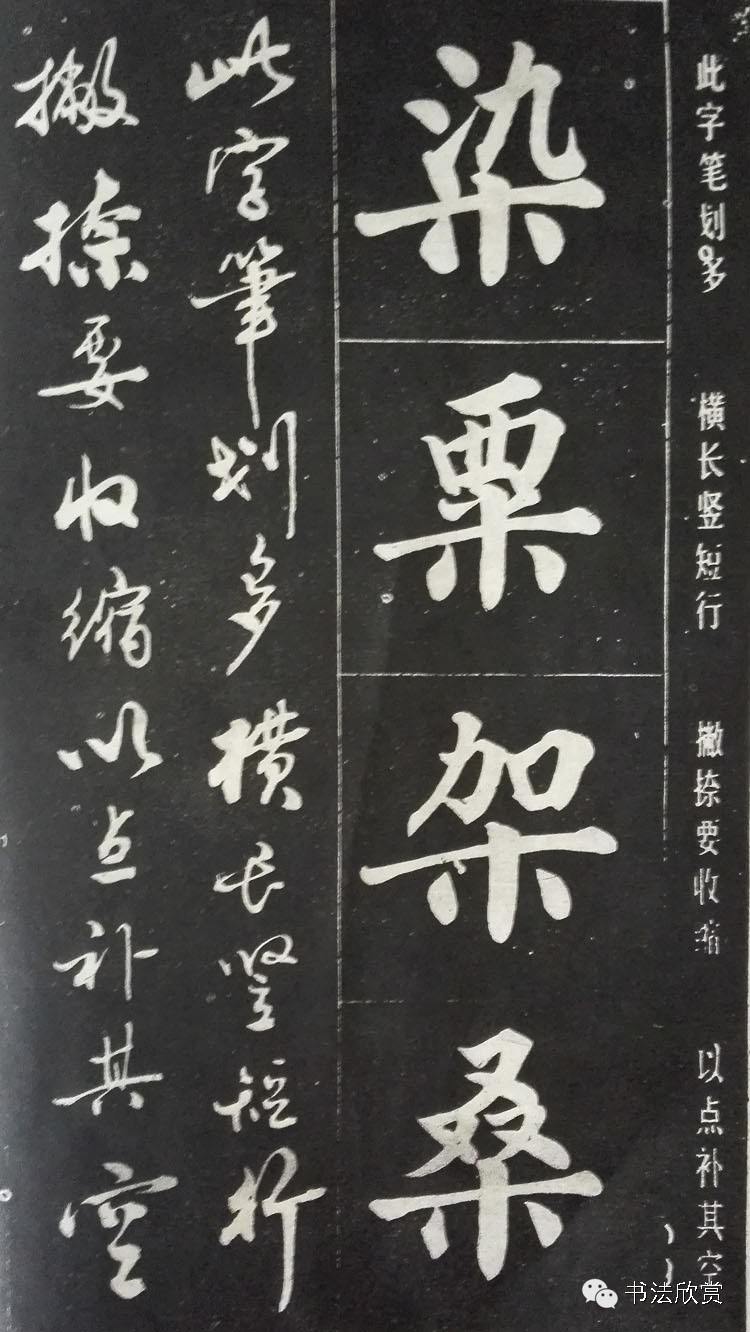 此字笔划多 横长竖短行 撇捺要收缩 以点补其空
染
栗
架
桑
此字筆划多横长竖短行
撇捺要收缩以点补其空
书法欣赏